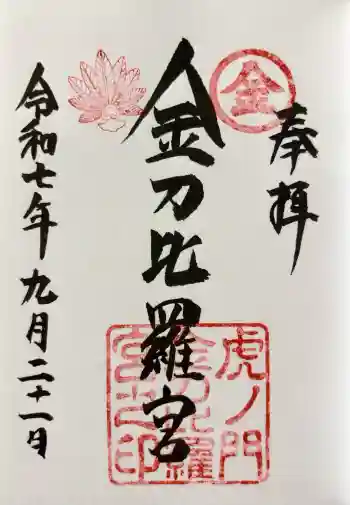 奉拝
金
金刀比羅宮
虎ノ門
金刀比羅
宮之印
令和七年九月二十一日